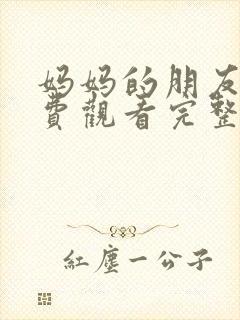 妈妈的朋友
费觀看完整
紅塵一公子